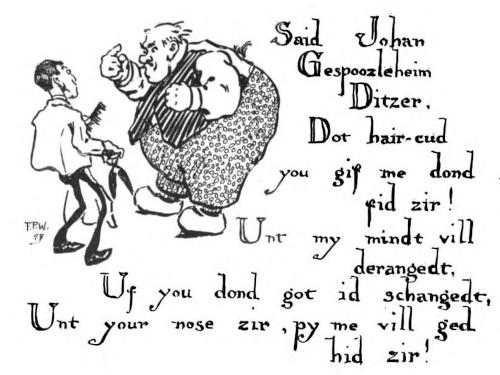 Said Johan
Gespoozleheim
Ditzer,
Dot hair-cud
you gif me dond
fid zir!
Unt my mindt vill
derangedt,
Uf you dond got id schangedt,
Unt your nose zir, py me vill ged
hid zir!
F.P.W.
99